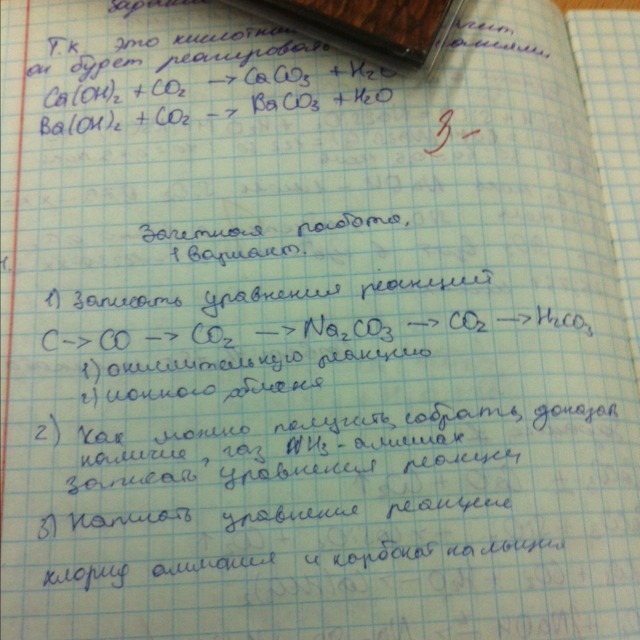 Т.к. это кислотный
он будет реагировать
Ca(OH)₂ + CO₂ → CaCO₃ + H₂O
Ba(OH)₂ + CO₂ → BaCO₃ + H₂O
3-
Зачетная работа.
1 вариант.
1) Записать уравнения реакций
C → CO → CO₂ → Na₂CO₃ → CO₂ → H₂CO₃
1) окислительную реакцию
2) ионного обмена
2) Как можно получить, собрать, доказать
наличие, газ NH₃ - аммиак
Записать уравнения реакции
3) Написать уравнение реакции
хлорид аммония и карбонат кальция